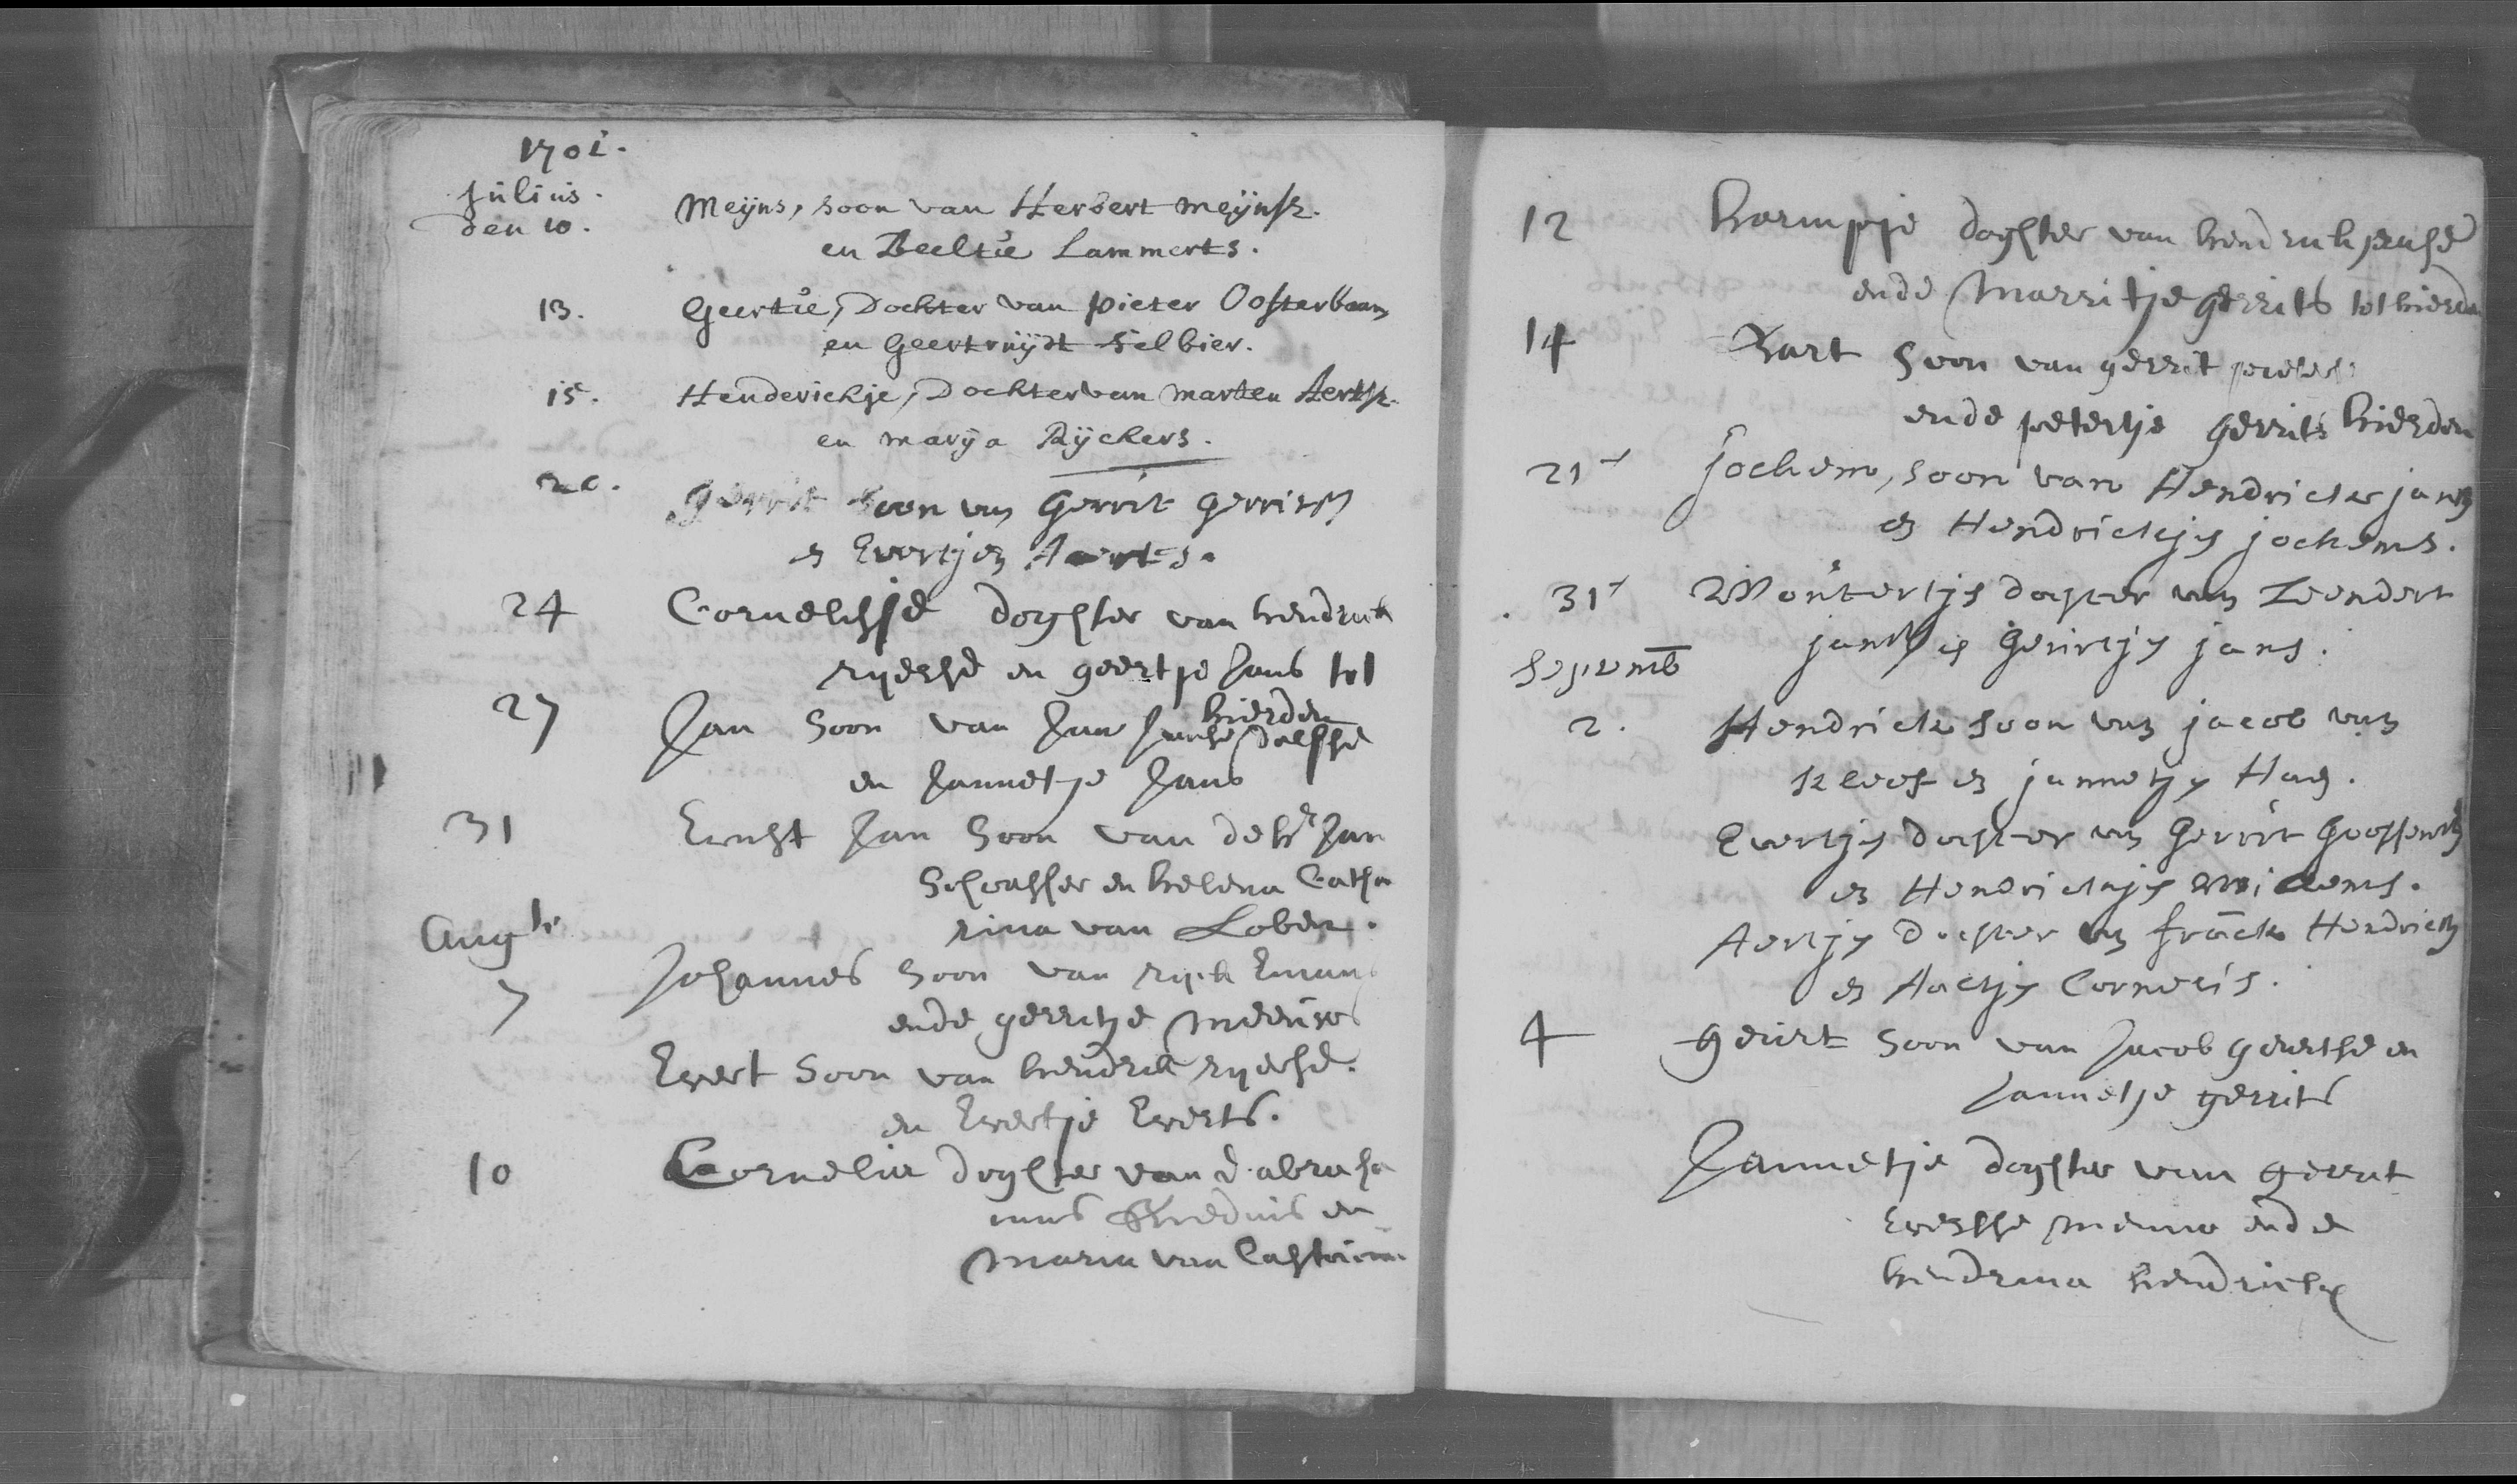 1701.
Julius.
den 10. Meijns, soon van Herbert meijnsz.
en Beeltie Lammerts.
13. Geertie, Dochter van pieter Oosterbaan
en Geertruijdt Selbier.
15. Henderickje, Dochter van marten Aertsz.
en marija Rijckers.
20. Gerrit soon van Gerrit Gerritsz
en Evertjen Aerts.
24 Cornelisje dochter van hendrick
rijcksse en geertje Jans tot
hierden
27 Jan soon van Jan Janse dolfse
en Jannetje Jans
31 Ernst Jan soon van de hr Jan
Schrasser en helena Catha
rina van Loben.
Augti.
7 Johannes soon van rijck Eman
ende gerritje meeuws
Evert soon van hendrick rijckse.
en Evertje Everts.
10 Cornelia dochter van d. abraha
mus en
maria van Castricum
12 harmpje dochter van hendrick janse
ende marritje gerrits tot hierden
14 Bart soon van gerrit peters
ende petertje gerrits hierden
21 Jochem, soon van Hendrick jansz
en Hendrickjen jochems.
31 Woutertje dochter van Leendert
jansz en Geurtjen jans.
Septemb
2. Hendrick soon van jacob van
Kleef en jannetjen Has.
Evertjen dochter van Gerrit Goossensz
en Hendrickjen Willems.
Aertjen dochter van franck Hendricksz
en Aeltjen Cornelis.
4 geurt soon van Jacob geurtse en
Jannetje gerrits
Jannetje dochter van gerrit
Evertse ende
hendrina hendricks